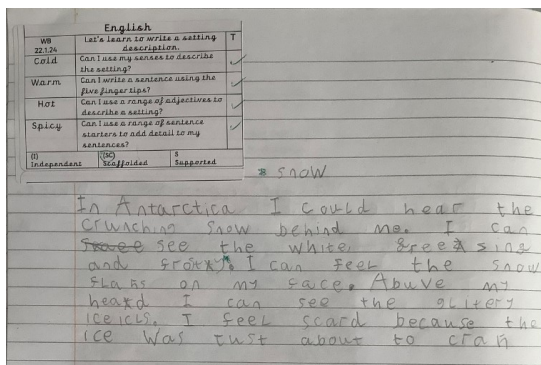 English
WB 22.1.24 Let's learn to write a setting description. T
Cold Can I use my senses to describe the setting?
Warm Can I write a sentence using the five finger tips?
Hot Can I use a range of adjectives to describe a setting?
Spicy Can I use a range of sentence starters to add detail to my sentences?
(I) Independent (SC) Scaffolded S Supported
* snow
In Antarctica I could hear the
crunching snow behind me. I can
see the white
and I can feel the snow
flaks on my face. Abuve my
heard I can see the glitery
iceicls. I feel scard because the
ice was Just about to